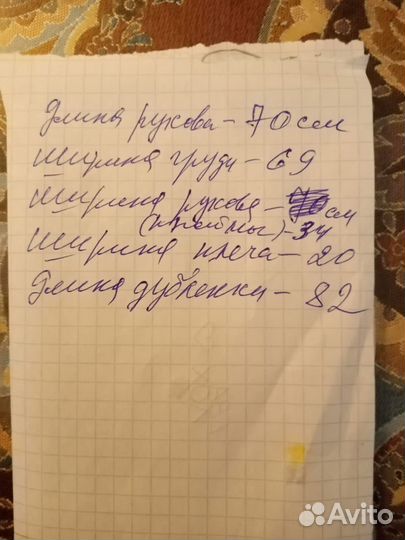 Длина рукова - 70 см
Ширина груди - 69
Ширина рукова - см
(проймы) - 34
Ширина плеча - 20
Длина дубленки - 82
Avito